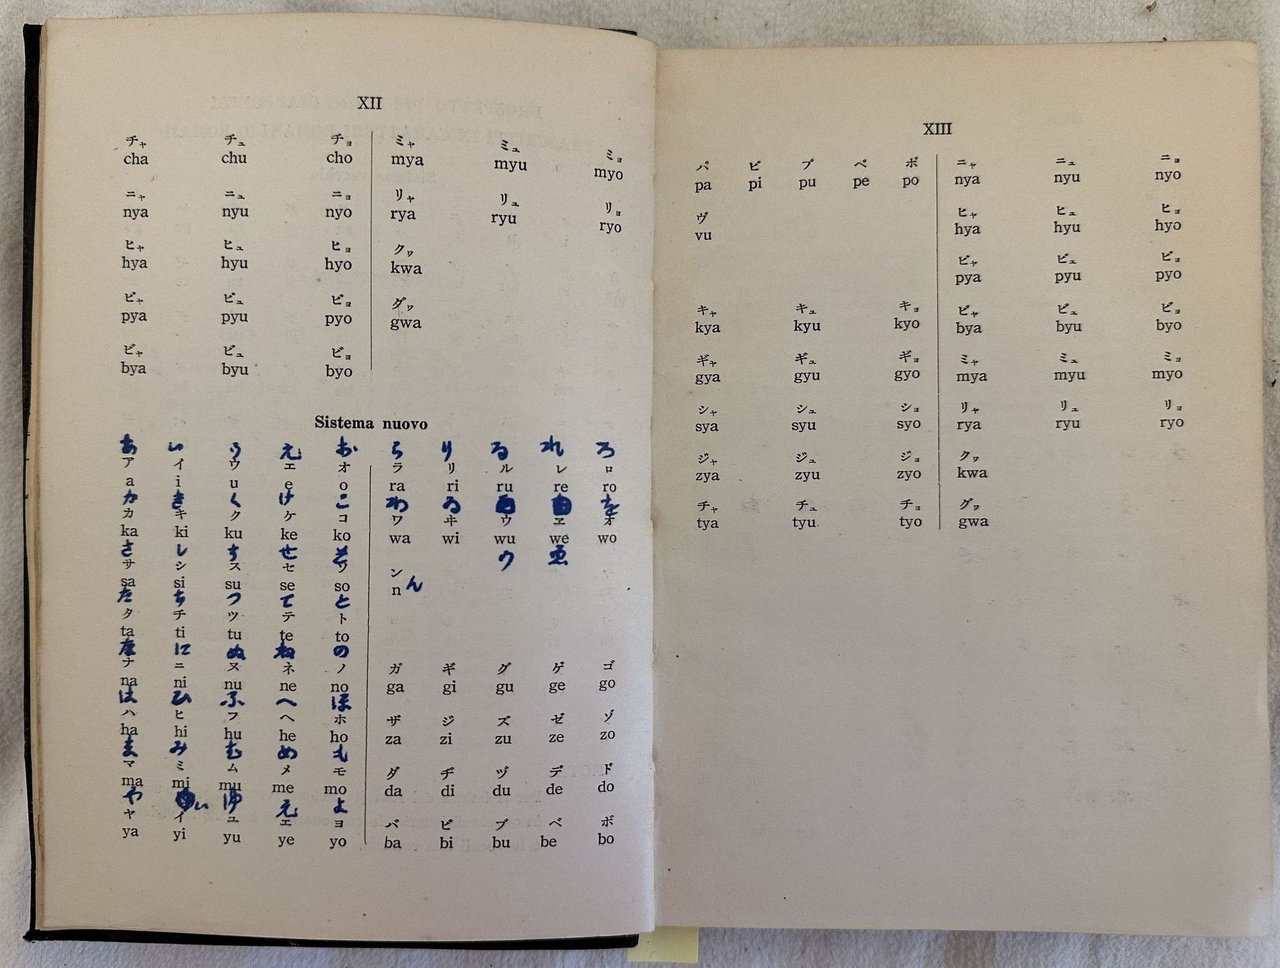 XII
チャ チュ チョ
cha chu cho
ニャ ニュ ニョ
nya nyu nyo
ヒャ ヒュ ヒョ
hya hyu hyo
ピャ ピュ ピョ
pya pyu pyo
ビャ ビュ ビョ
bya byu byo
ミャ ミュ ミョ
mya myu myo
リャ リュ リョ
rya ryu ryo
クヮ
kwa
グヮ
gwa
Sistema nuovo
あ い う え お
ア イ ウ エ オ
a i u e o
か き く け こ
カ キ ク ケ コ
ka ki ku ke ko
さ し す せ そ
サ シ ス セ ソ
sa si su se so
た ち つ て と
タ チ ツ テ ト
ta ti tu te to
な に ぬ ね の
ナ ニ ヌ ネ ノ
na ni nu ne no
は ひ ふ へ ほ
ハ ヒ フ ヘ ホ
ha hi hu he ho
ま み む め も
マ ミ ム メ モ
ma mi mu me mo
や い ゆ え よ
ヤ イ ユ エ ヨ
ya yi yu ye yo
ら り る れ ろ
ラ リ ル レ ロ
ra ri ru re ro
わ ゐ を
ワ ヰ ウ ヱ オ
wa wi wu we wo
ゑ
ン
n ん
ガ ギ グ ゲ ゴ
ga gi gu ge go
ザ ジ ズ ゼ ゾ
za zi zu ze zo
ダ ヂ ヅ デ ド
da di du de do
バ ビ ブ ベ ボ
ba bi bu be bo
XIII
パ ピ プ ペ ポ
pa pi pu pe po
ヴ
vu
キャ キュ キョ
kya kyu kyo
ギャ ギュ ギョ
gya gyu gyo
シャ シュ ショ
sya syu syo
ジャ ジュ ジョ
zya zyu zyo
チャ チュ チョ
tya tyu tyo
ニャ ニュ ニョ
nya nyu nyo
ヒャ ヒュ ヒョ
hya hyu hyo
ピャ ピュ ピョ
pya pyu pyo
ビャ ビュ ビョ
bya byu byo
ミャ ミュ ミョ
mya myu myo
リャ リュ リョ
rya ryu ryo
クヮ
kwa
グヮ
gwa